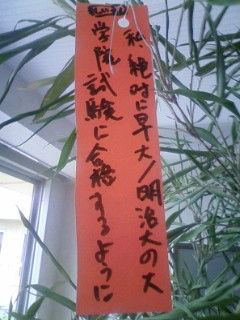 私 絶対に早大/明治大の大
学院 試験に合格するように